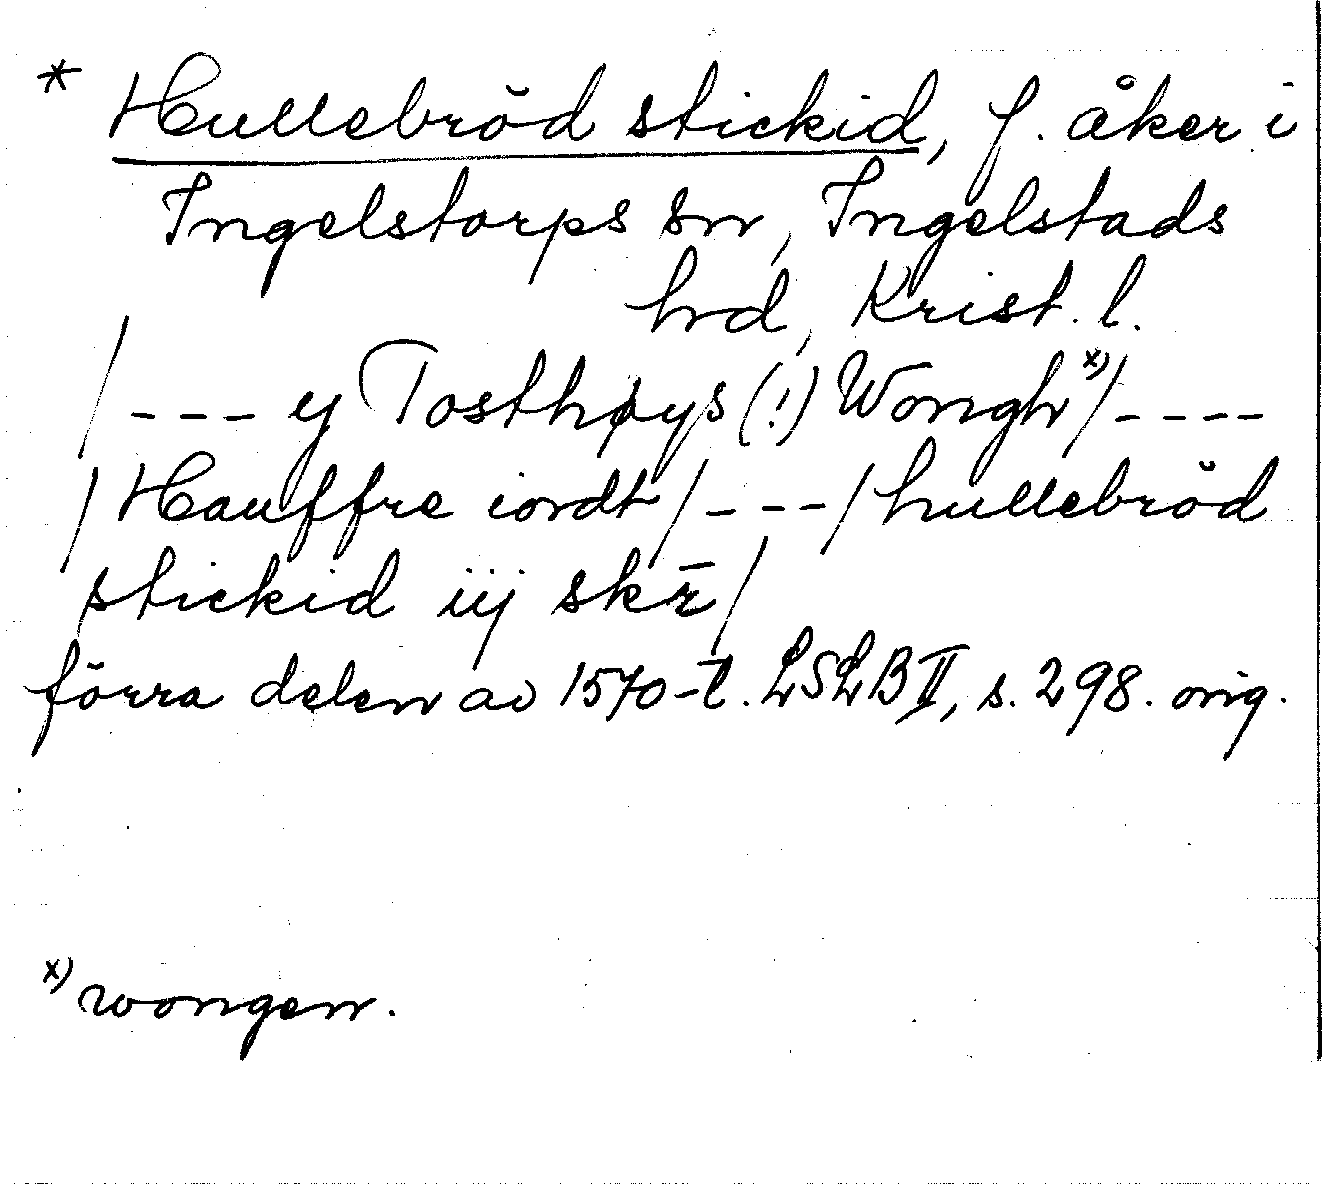 * Hullebröd stickid, f. åker i
Ingelstorps sn, Ingelstads
hd, Krist. l.
/ - - - y Tosthøys (!) Wongh x) / - - - -
/ Hauffre iordt / - - - / hullebröd
stickid iij skr̄ /
förra delen av 1570-t. LSLB II, s. 298. orig.
x) wongen.